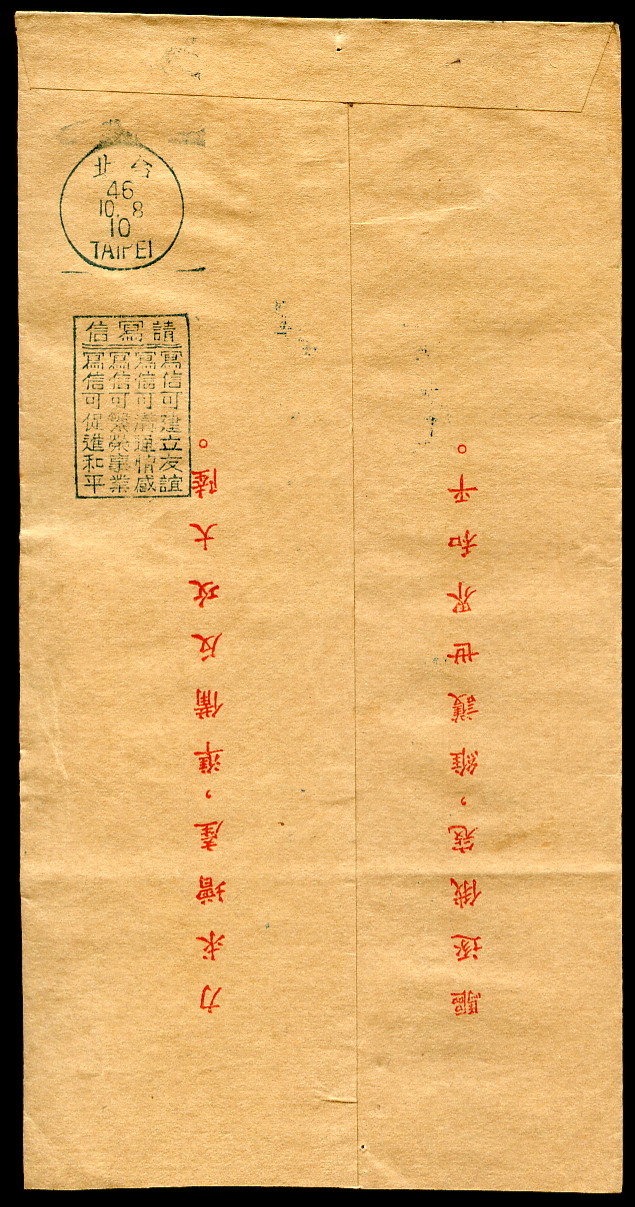 台北
46
10. 8
10
TAIPEI
請寫信
寫信可建立友誼
寫信可溝通情感
寫信可繁榮事業
寫信可促進和平
力求增產，準備反攻大陸。
驅逐俄寇，維護世界和平。